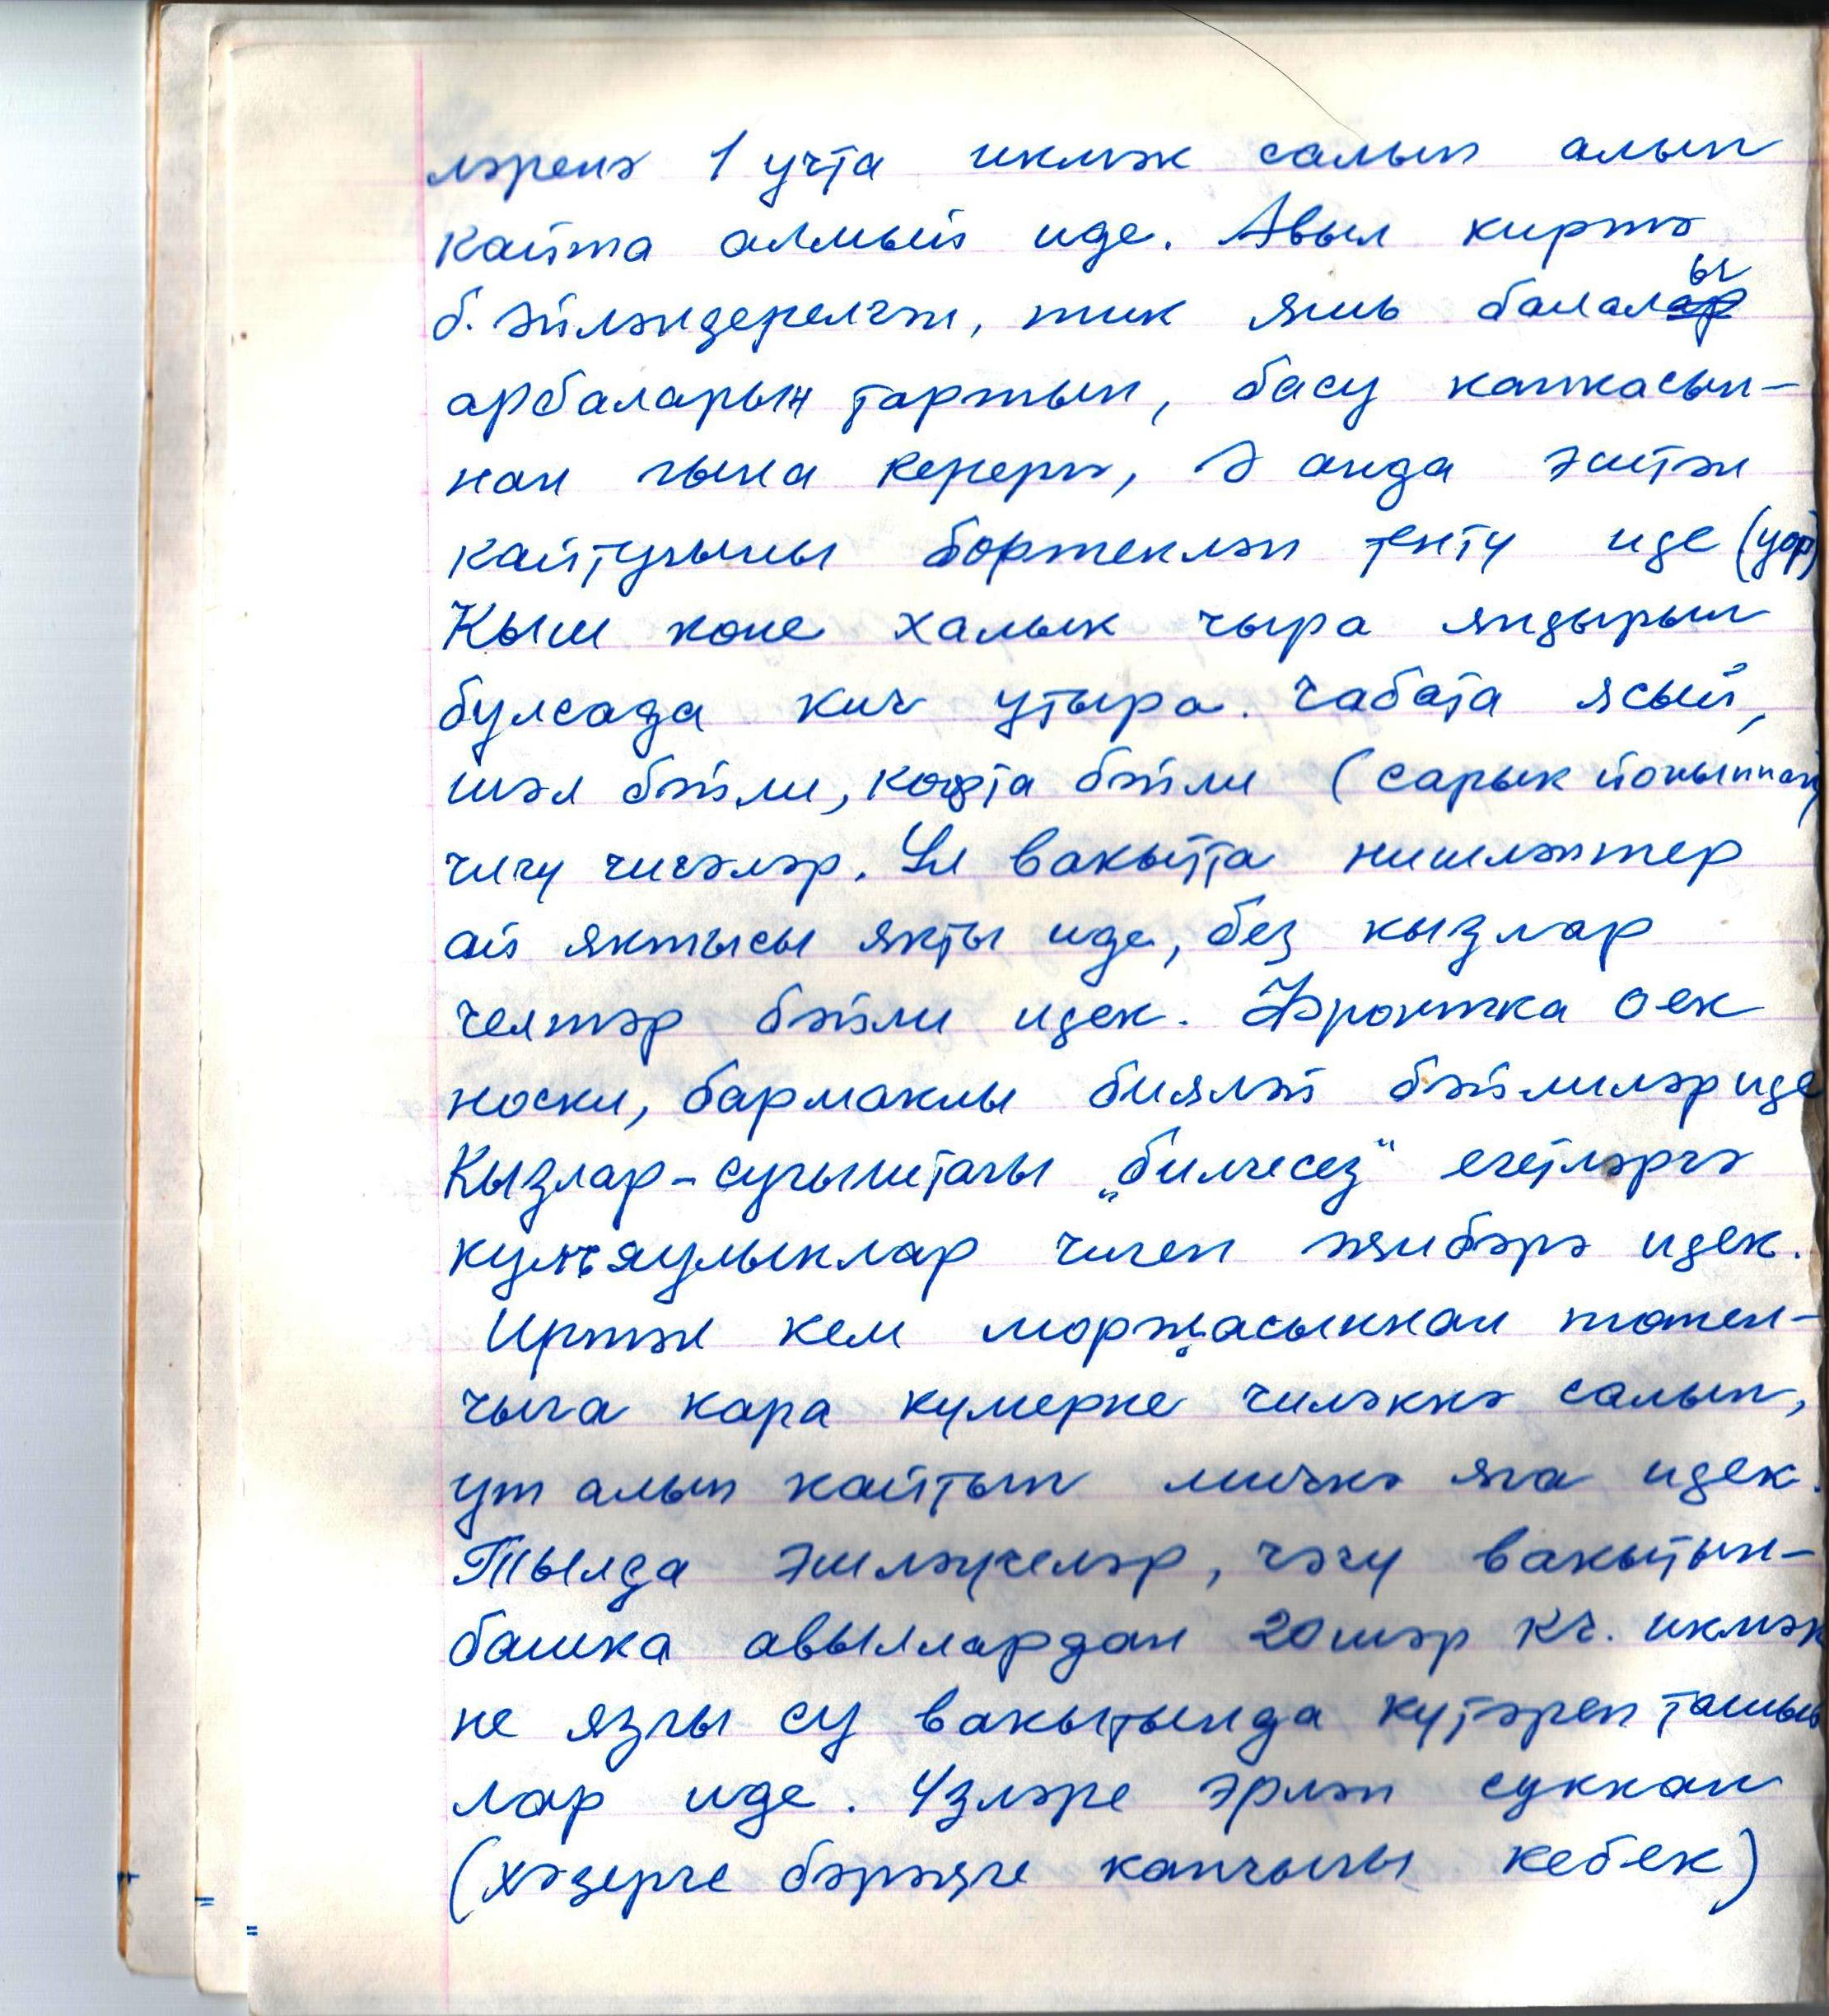 ләренә 1 учта икмәк салып алып
кайта алмый иде. Авыл киртә
б. әйләндерелгән, тик яшь балалар ы
арбаларын тартып, басу капкасын-
нан гына керергә, ә анда эштән
кайтучыны бөртекләп тентү иде
Кыш көне халык чыра яндырып
булсада кич утыра. Чабата ясый,
шәл бәйли, кофта бәйли (сарык йоныннан)
чигү чигәләр. Ул вакытта нишләптер
ай яктысы якты иде, без кызлар
челтәр бәйли идек. Фронтка оек
носки, бармаклы бияләй бәйлиләр иде
Кызлар-сугыштагы „билгесез" егетләргә
кулъяулыклар чигеп җибәрә идек.
Иртән кем морҗасыннан төтен-
чыга кара күмерне чиләккә салып,
ут алып кайтып мичкә яга идек.
Тылда эшләүчеләр, чәчү вакытын-
башка авыллардан 20шәр кг. икмәк
не язгы су вакытында күтәреп ташый
лар иде. Үзләре эрләп суккан
(хәзерге бәрәңге капчыгы кебек)